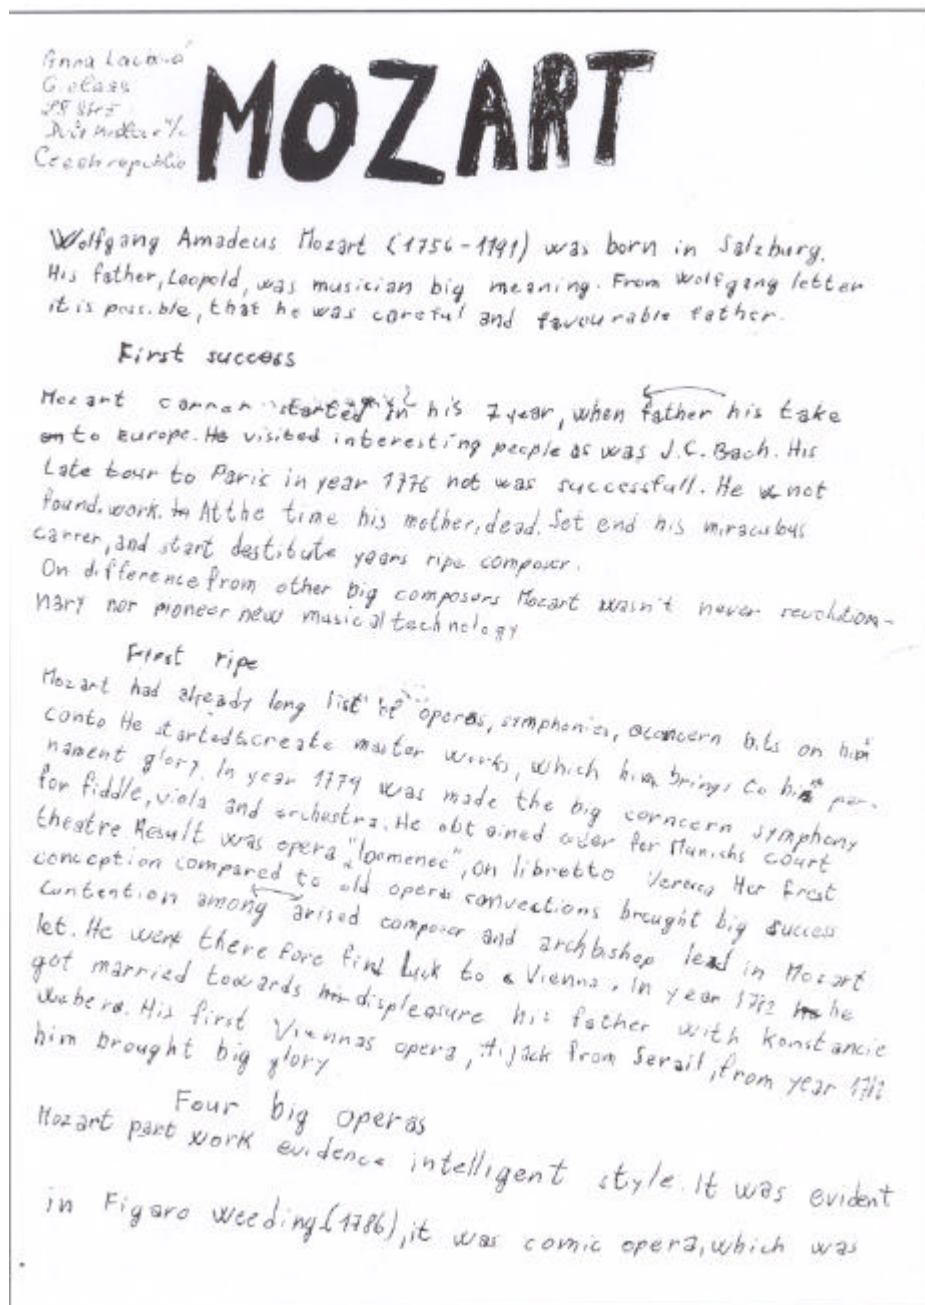 Anna
MOZART
Czech republic
Wolfgang Amadeus Mozart (1756-1791) was born in Salzburg.
His father, Leopold, was musician big meaning. From Wolfgang letter
it is possible, that he was careful and favourable father.
First success
Mozart started in his 7 year, when father his take
to Europe. He visited interesting people as was J.C. Bach. His
Late tour to Paris in year 1776 not was successfull. He not
found work. At the time his mother, dead. Set end his miraculous
carrer, and start destitute years ripe composer.
On difference from other big composers Mozart wasn't never revolution-
nary nor pioneer new musical technology
First ripe
Mozart had already long list operas, symphonies, bits on him
conto He started create master works, which him brings to his per-
nament glory. In year 1779 was made the big corncern symphony
for fiddle, viola and orchestra. He obtained order for Munichs court
theatre Result was opera "Idomeneo", on libretto Her first
conception compared to old operas convections brought big success
Contention among arised composer and archbishop lead in Mozart
let. He went there fore find Luck to Vienna. In year he
got married towards displeasure his father with Konstancie
Webera. His first Viennas opera, Hijack from Serail, from year
him brought big glory
Four big operas
Mozart part work evidence intelligent style. It was evident
in Figaro weeding (1786), it was comic opera, which was